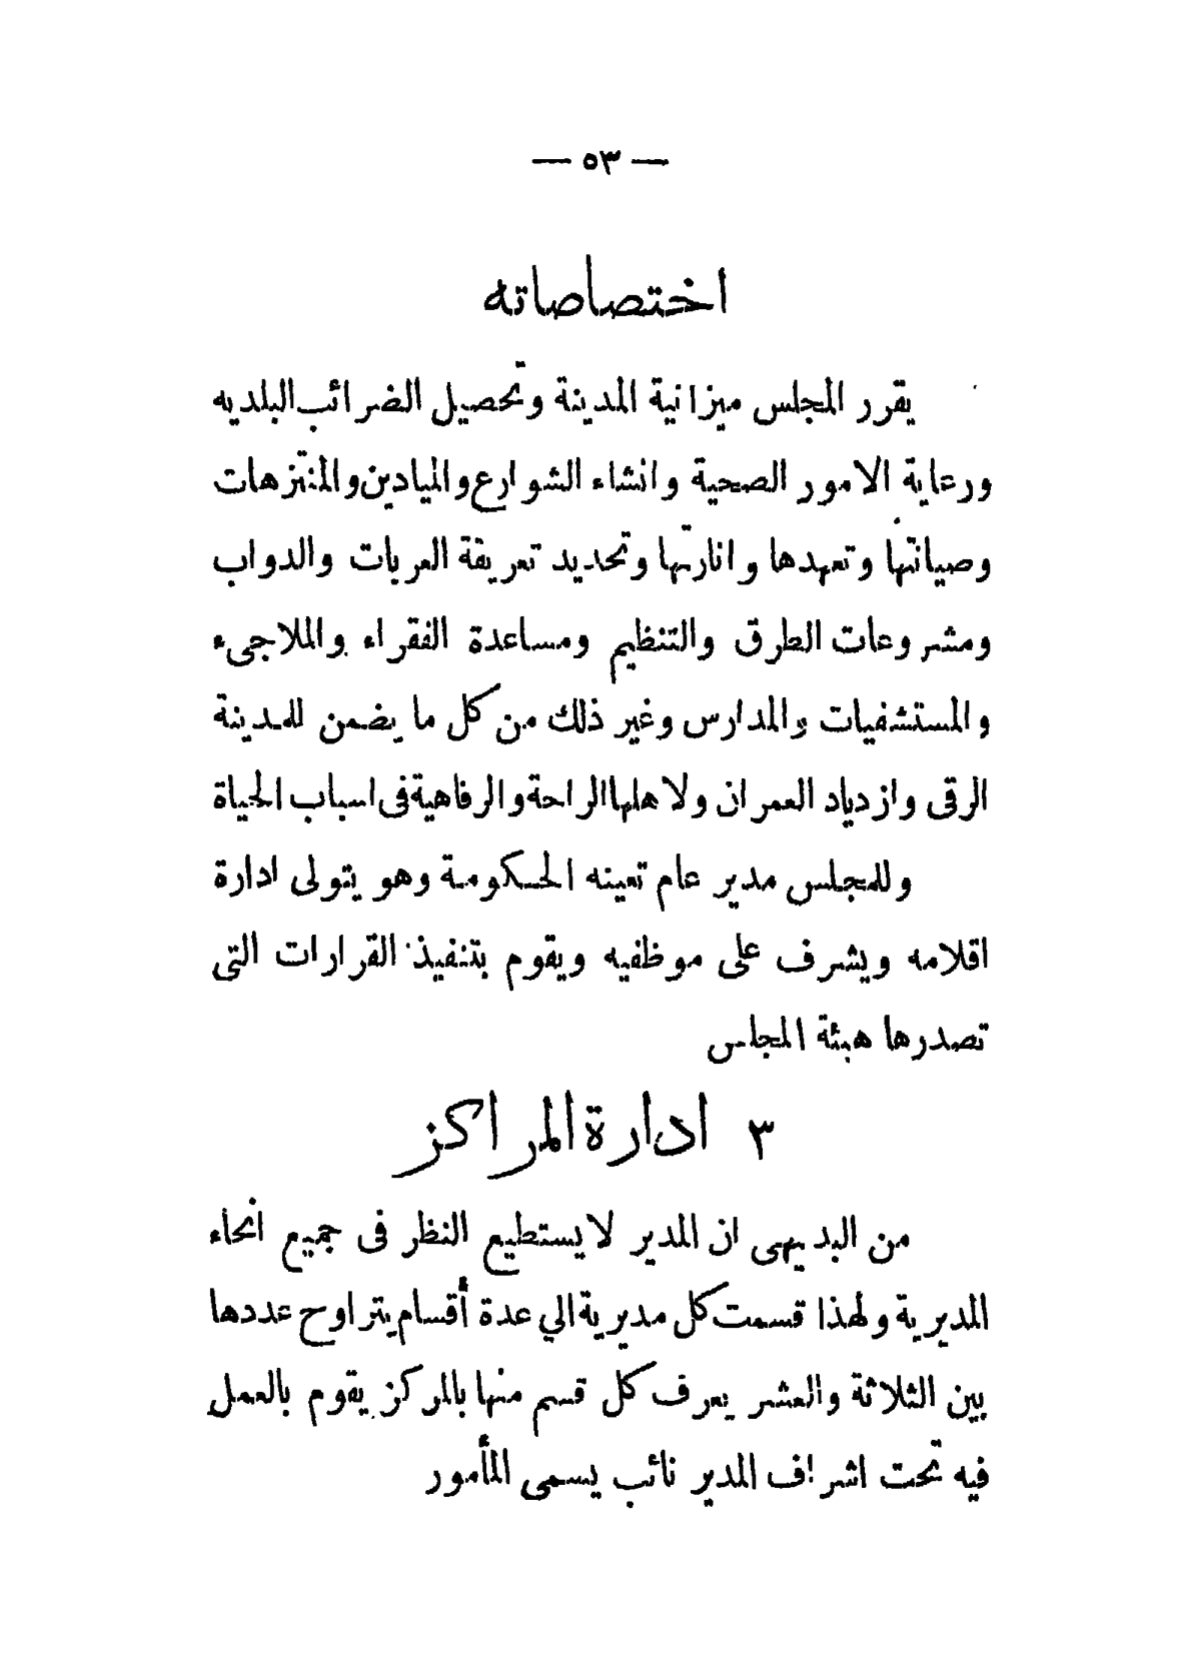 — ٥٣ —
اختصاصاته
يقرر المجلس ميزانية المدينة وتحصيل الضرائب البلديه
ورعاية الامور الصحية وانشاء الشوارع والميادين والمنتزهات
وصيانتها وتعهدها وانارتها وتحديد تعريفة العربات والدواب
ومشروعات الطرق والتنظيم ومساعدة الفقراء والملاجىء
والمستشفيات والمدارس وغير ذلك من كل ما يضمن للمدينة
الرقى وازدياد العمران ولاهلها الراحة والرفاهية فى اسباب الحياة
وللمجلس مدير عام تعينه الحكومة وهو يتولى ادارة
اقلامه ويشرف على موظفيه ويقوم بتنفيذ القرارات التى
تصدرها هيئة المجلس
٣ ادارة المراكز
من البديهى ان المدير لا يستطيع النظر فى جميع انحاء
المديرية ولهذا قسمت كل مديرية الي عدة أقسام يتراوح عددها
بين الثلاثة والعشر يعرف كل قسم منها بالمركز يقوم بالعمل
فيه تحت اشراف المدير نائب يسمى المأمور